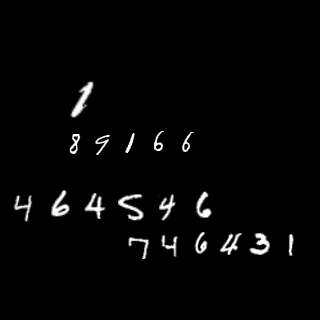 1
89166
464546
746431